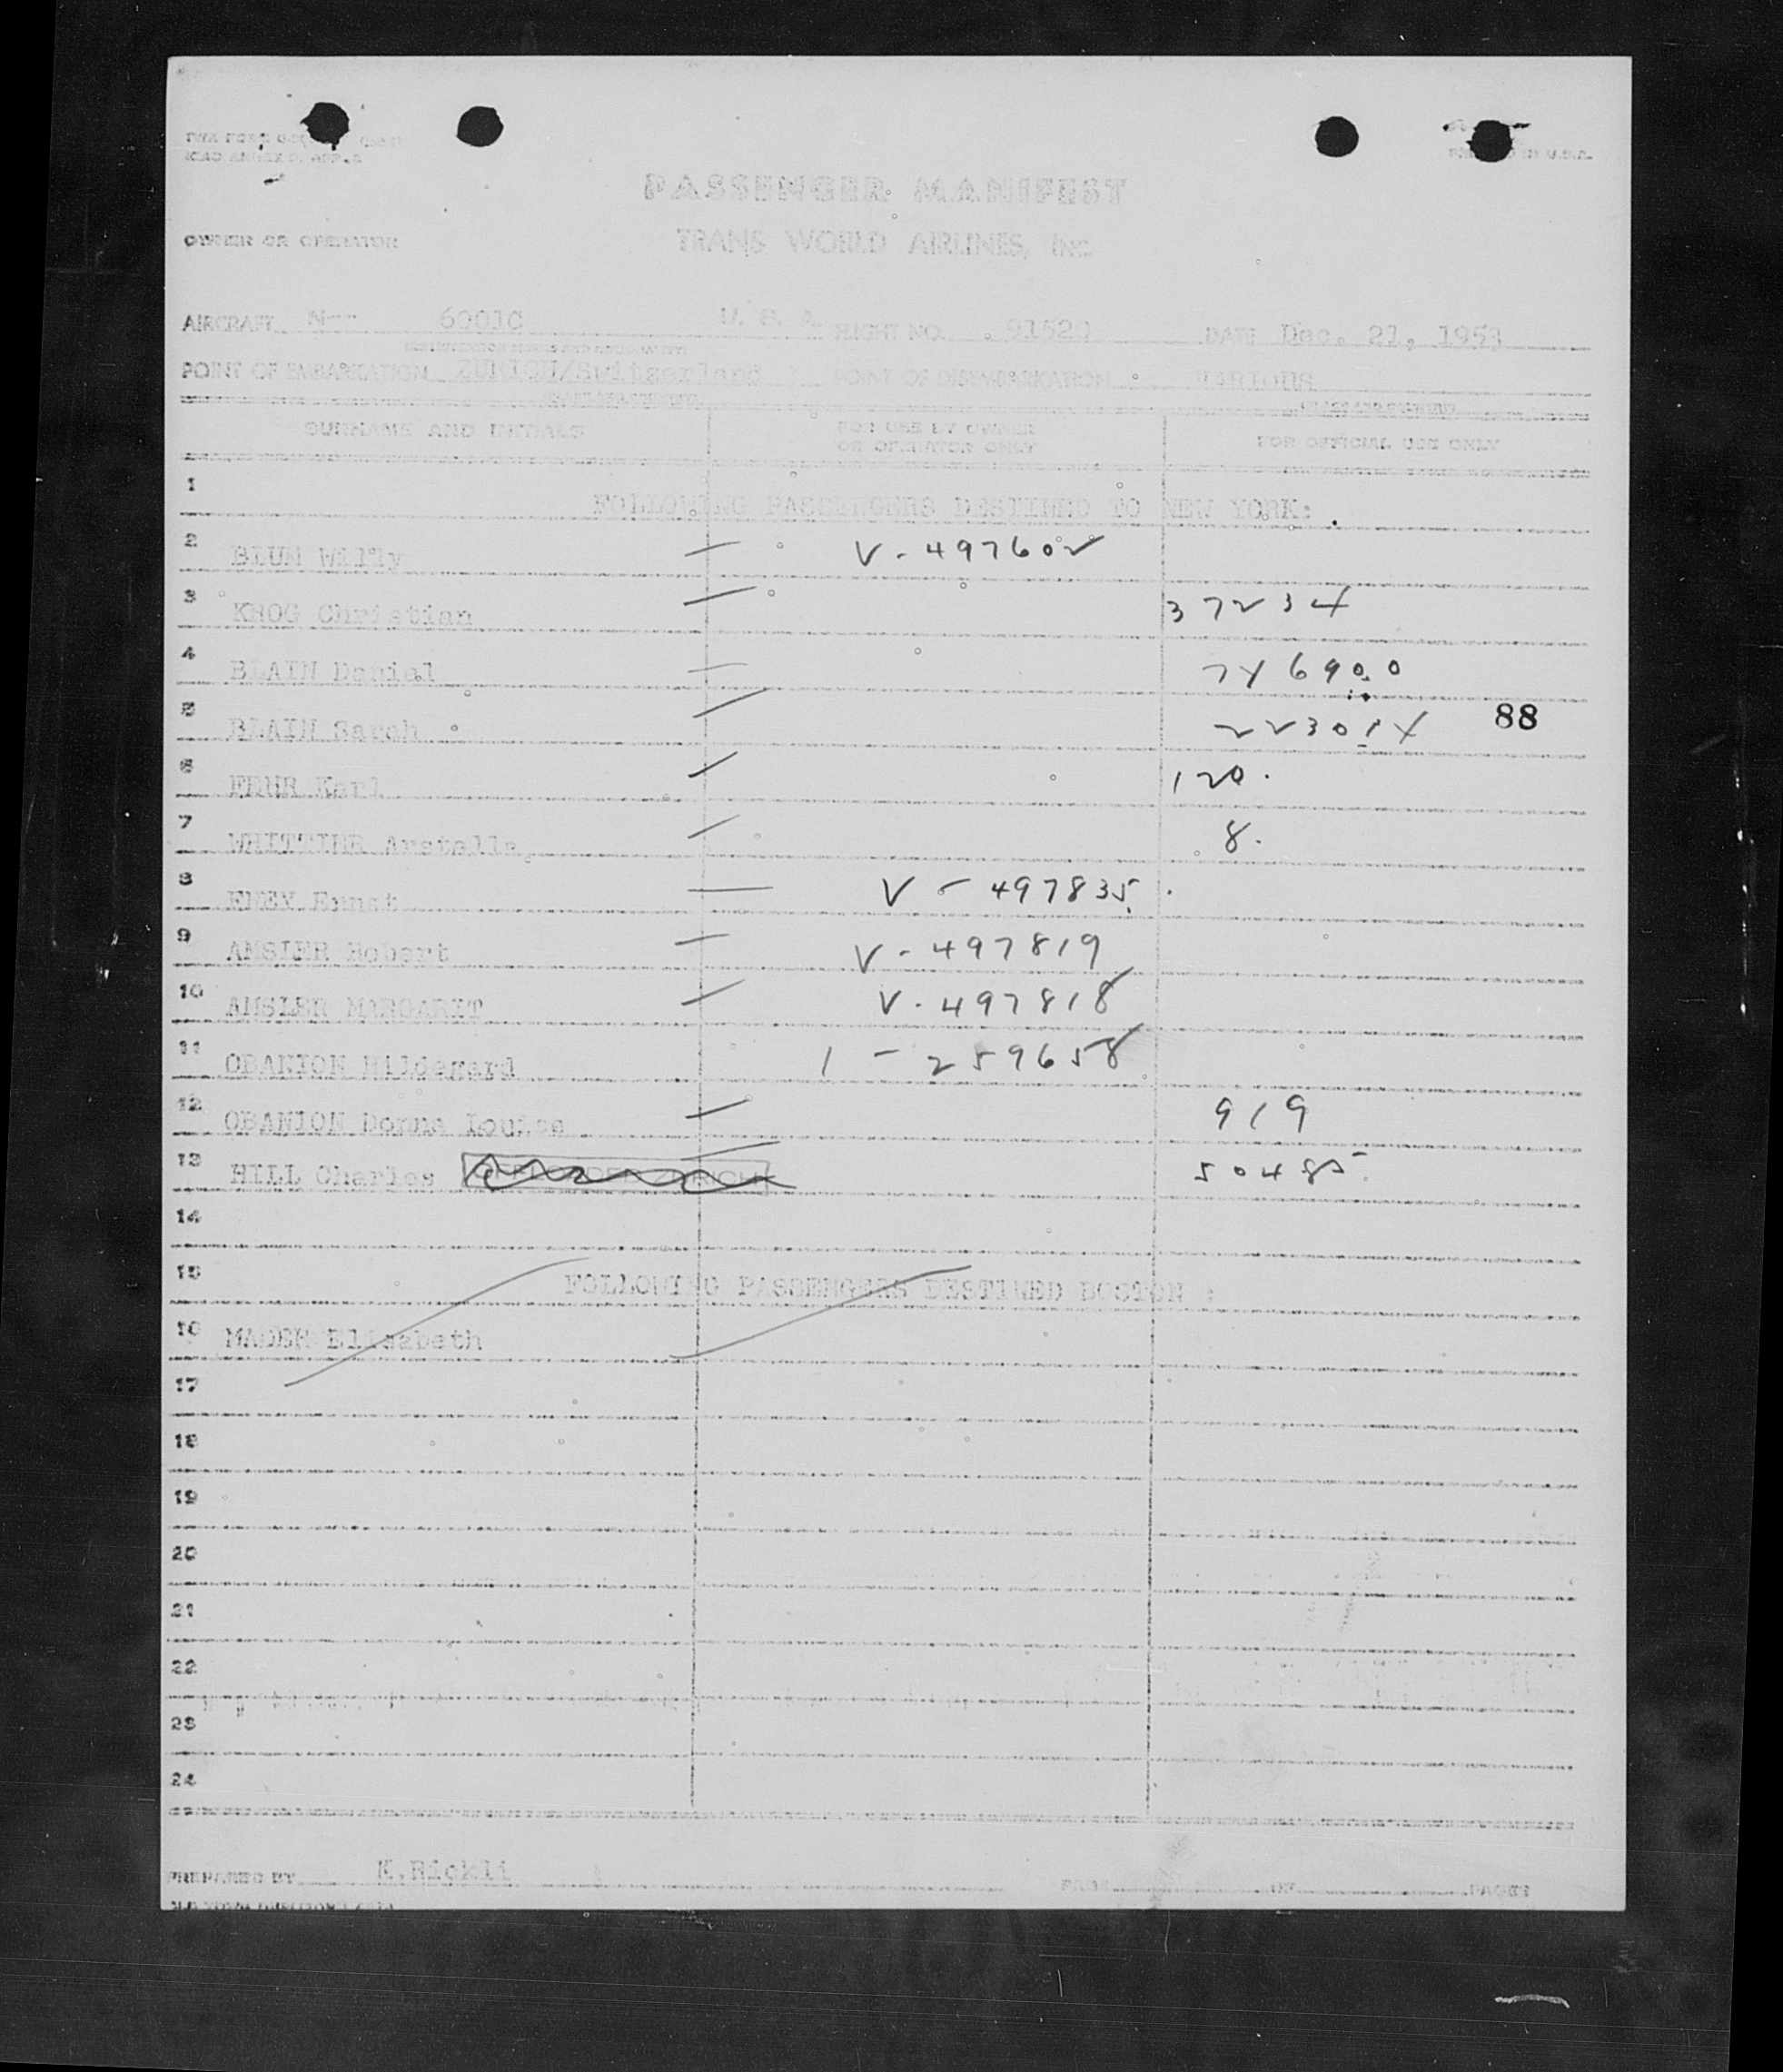 PASSENGER MANIFEST
OWNER OR OPERATOR TRANS WORLD AIRLINES, INC
AIRCRAFT N-- 6001C U. S. A FLIGHT NO. 91520 DATE Dec. 21, 1953
POINT OF EMBARKATION ZURICH/Switzerland POINT OF DISEMBARKATION VARIOUS
SURNAME AND INITIALS FOR USE BY OWNER OR OPERATOR ONLY FOR OFFICIAL USE ONLY
1 FOLLOWING PASSENGERS DESTINED TO NEW YORK:
2 BLUM Willy V - 497602
3 KROG Christian 37234
4 BLAIN Daniel
5 BLAIN Sarah 88
6 Karl 120.
7 8.
8 V - 497835
9 AMSLER Robert V - 497819
10 AMSLER MARGARIT V - 497818
11 OBANION Hildegard 1 - 259658
12 OBANION Donna Louise 919
13 HILL Charles 50485
14
15 FOLLOWING PASSENGERS DESTINED BOSTON :
16 MADER Elisabeth
17
18
19
20
21
22
23
24
PREPARED BY K.Rickli PAGE OF PAGES